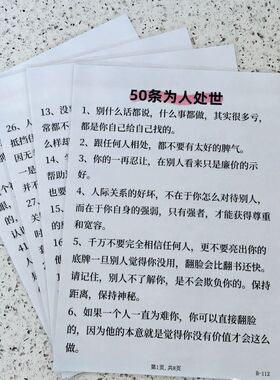 50条为人处世
1、别什么话都说，什么事都做，其实很多亏，
都是你自己给自己找的。
2、跟任何人相处，都不要有太好的脾气。
3、你的一再忍让，在别人看来只是廉价的示
好。
4、人际关系的好坏，不在于你怎么对待别人，
而在于你自身的强弱，只有强者，才能获得尊重
和宽容。
5、千万不要完全相信任何人，更不要亮出你的
底牌一旦别人觉得你没用，翻脸会比翻书还快。
请记住，别人不了解你，是不会欺负你的。保持
距离，保持神秘。
6、如果一个人一直为难你，你可以直接翻脸
的，因为他的本意就是觉得你没有价值才会这么
做。
第1页，共8页
B-112
13、没
常都不
么样却
14、
帮助
也要
26、
抵挡住
因无